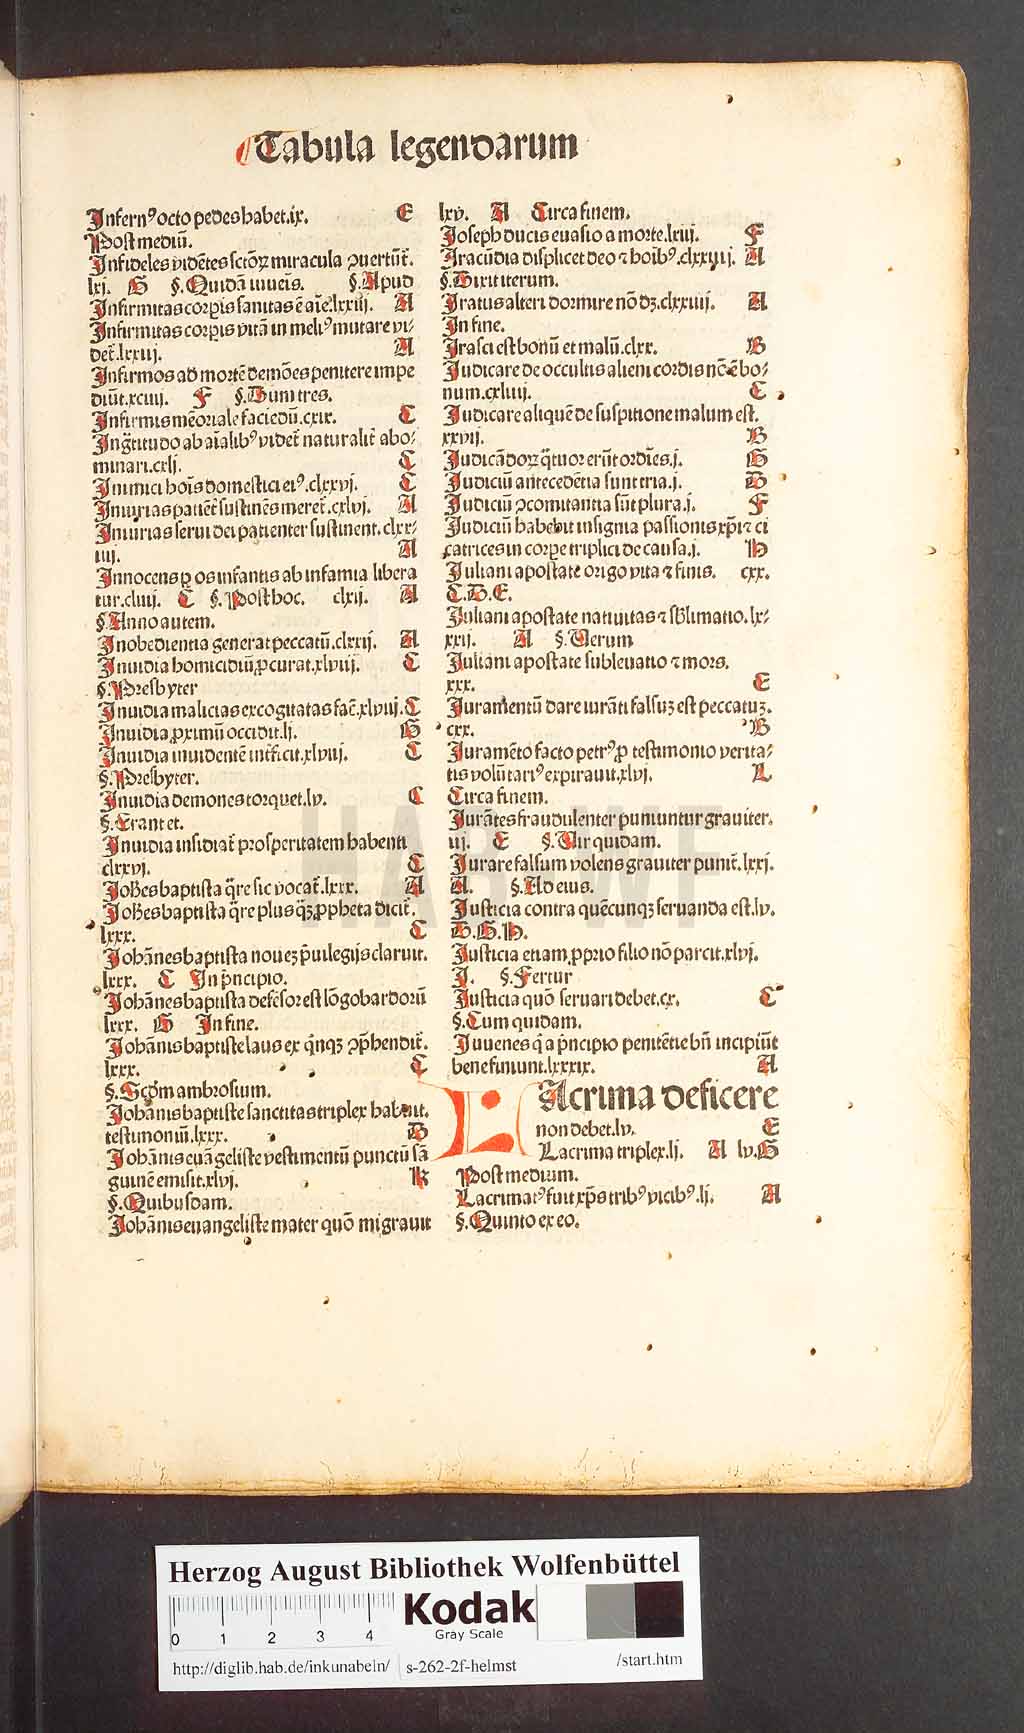 Tabula legendarum
Infernꝰ octo pedes habet.ix. E
Post mediū.
Infideles vidētes sctōꝝ miracula ꝯuertūt̄.
lxj. G §.Quidā iuueīs. §.Apud
Infirmitas corꝑis sanitas ē aīe.lxxiij. A
Infirmitas corꝑis vitā in meliꝰ mutare vi-
det̄.lxxiij. A
Infirmos ad mortē demōes penitere impe
diūt.xciiij. F §.Dum tres.
Infirmis mēoriale faciedū.cxix. C
Ingr̄titudo ab aīalibꝰ videt̄ naturalit̄ abo-
minari.cxlj. C
Inimici hoīs domestici eiꝰ.clxxvj. C
Iniurias patiēt̄ sustinēs meret̄.cxlvj. A
Iniurias serui dei patienter sustinent.clxx-
iiij. A
Innocens ꝑ os infantis ab infamia libera
tur.cliiij. C §.Post hoc. clxij. A
§.Anno autem.
Inobedientia generat peccatū.clxxij. A
Inuidia homicidiū ꝓcurat.xlviij. C
§.Presbyter
Inuidia malicias excogitatas fac̄.xlviij. C
Inuidia ꝓximū occidit.lj. G
Inuidia inuidentē int̄ficit.xlviij. C
§.Presbyter.
Inuidia demones torquet.lv. C
§.Erant et.
Inuidia insidiat̄ prosperitatem habenti
clxxvj. C
Joh̄es baptista q̄re sic vocat̄.lxxx. A
Joh̄es baptista q̄re plus qꝫ ꝓpheta dicit̄.
lxxx. C
Johānes baptista nouēꝫ p̄uilegijs claruit.
lxxx. C In p̄ncipio.
Johānes baptista defēsor est lōgobardorū
lxxx. G In fine.
Johānis baptiste laus ex qn̄qꝫ ꝯp̄hendit̄.
lxxx. C
§.Scd̄m ambrosium.
Johānis baptiste sanctitas triplex habuit.
testimoniū.lxxx. B
Johānis euāgeliste vestimentū punctū sā
guinē emisit.xlvj. K
§.Quibusdam.
Johānis euangeliste mater quō migrauit
lxv. A Circa finem.
Joseph ducis euasio a morte.lxiij. F
Iracūdia displicet deo ⁊ hoībꝰ.clxxiij. A
§.Dixit iterum.
Iratus alteri dormire nō dꝫ.clxxiiij. A
In fine.
Irasci est bonū et malū.clxx. B
Judicare de occultis alieni cordis nō ē bo-
num.cxliiij. C
Judicare aliquē de suspitione malum est.
xxvij. B
Judicādoꝝ q̄tuor erūt ordīes.j. G
Judiciū antecedētia sunt tria.j. B
Judiciū ꝯcomitantia sūt plura.j. F
Judiciū habebit insignia passionis xp̄i ⁊ ci
catrices in corꝑe triplici de causa.j. H
Juliani apostate origo vita ⁊ finis. cxx.
C.D.E.
Juliani apostate natiuitas ⁊ sb̄limatio.lx-
xxij. A §.Uerum
Juliani apostate subleuatio ⁊ mors.
xxx. E
Juramentū dare iurāti falsuꝫ est peccatuꝫ.
cxx. B
Juramēto facto petrꝰ ꝓ testimonio verita-
tis volūtariꝰ expirauit.xlvj. L
Circa finem.
Jurātes fraudulenter puniuntur grauiter.
iij. E §.Uir quidam.
Jurare falsum volens grauiter punit̄.lxxj.
A. §.Ad eius.
Justicia contra quēcunqꝫ seruanda est.lv.
D.G.H.
Justicia etiam ꝓprio filio nō parcit.xlvj.
J. §.Fertur
Justicia quō seruari debet.cx. C
§.Cum quidam.
Juuenes q̄ a p̄ncipio penitētie bn̄ incipiūt
bene finiunt.lxxxix. A
LAcrima deficere
non debet.lv. E
Lacrima triplex.lj. A lv.G
Post medium.
Lacrimatꝰ fuit xp̄s tribꝰ vicibꝰ.lj. A
§.Quinto ex eo.
HAB WF
Herzog August Bibliothek Wolfenbüttel
0 1 2 3 4
Kodak
Gray Scale
http://diglib.hab.de/inkunabeln/ s-262-2f-helmst /start.htm